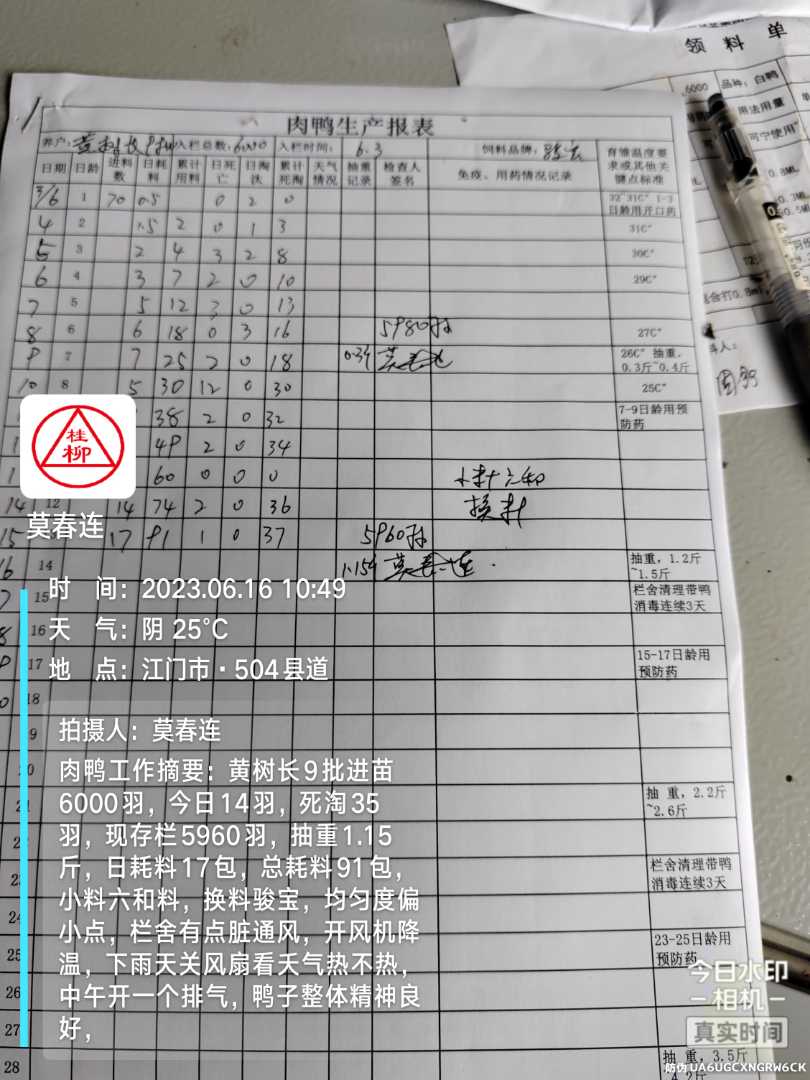 领料单
6000
品种：白鸭
用法用量
可宁使用
0.8ML
肉鸭生产报表
养户： 入栏总数：6000 入栏时间：6.3 饲料品牌： 育雏温度要求或其他关键点标准
日期 日龄 进料数 日耗料 累计用料 日死亡 日淘汰 累计死淘 天气情况 抽重记录 检查人签名 免疫、用药情况记录
3/6 1 70 0.5 0 2 0 32~31C° 1-3日龄用开口药
4 2 1.5 2 0 1 3 31C°
5 3 2 4 3 2 8 30C°
6 4 3 7 2 0 10 29C°
7 5 5 12 3 0 13
8 6 6 18 0 3 16 5980羽 27C°
9 7 7 25 2 0 18 莫春连 26C° 抽重，0.3斤~0.4斤
10 8 5 30 12 0 30 25C°
38 2 0 32 7-9日龄用预防药
49 2 0 34
60 0 0 0
14 12 14 74 2 0 36 换料
15 17 91 1 0 37 5960羽
14 1.15斤 莫春连 抽重，1.2斤~1.5斤
15 栏舍清理带鸭消毒连续3天
16
17 15-17日龄用预防药
18
抽 重，2.2斤~2.6斤
栏舍清理带鸭消毒连续3天
24
25 23-25日龄用预防药
26
27
28 抽 重，3.5斤
桂柳
莫春连
时 间：2023.06.16 10:49
天 气：阴 25℃
地 点：江门市·504县道
拍摄人：莫春连
肉鸭工作摘要：黄树长9批进苗
6000羽，今日14羽，死淘35
羽，现存栏5960羽，抽重1.15
斤，日耗料17包，总耗料91包，
小料六和料，换料骏宝，均匀度偏
小点，栏舍有点脏通风，开风机降
温，下雨天关风扇看天气热不热，
中午开一个排气，鸭子整体精神良
好，
今日水印
相机
真实时间
防伪 UA6UGCXNGRW6CK